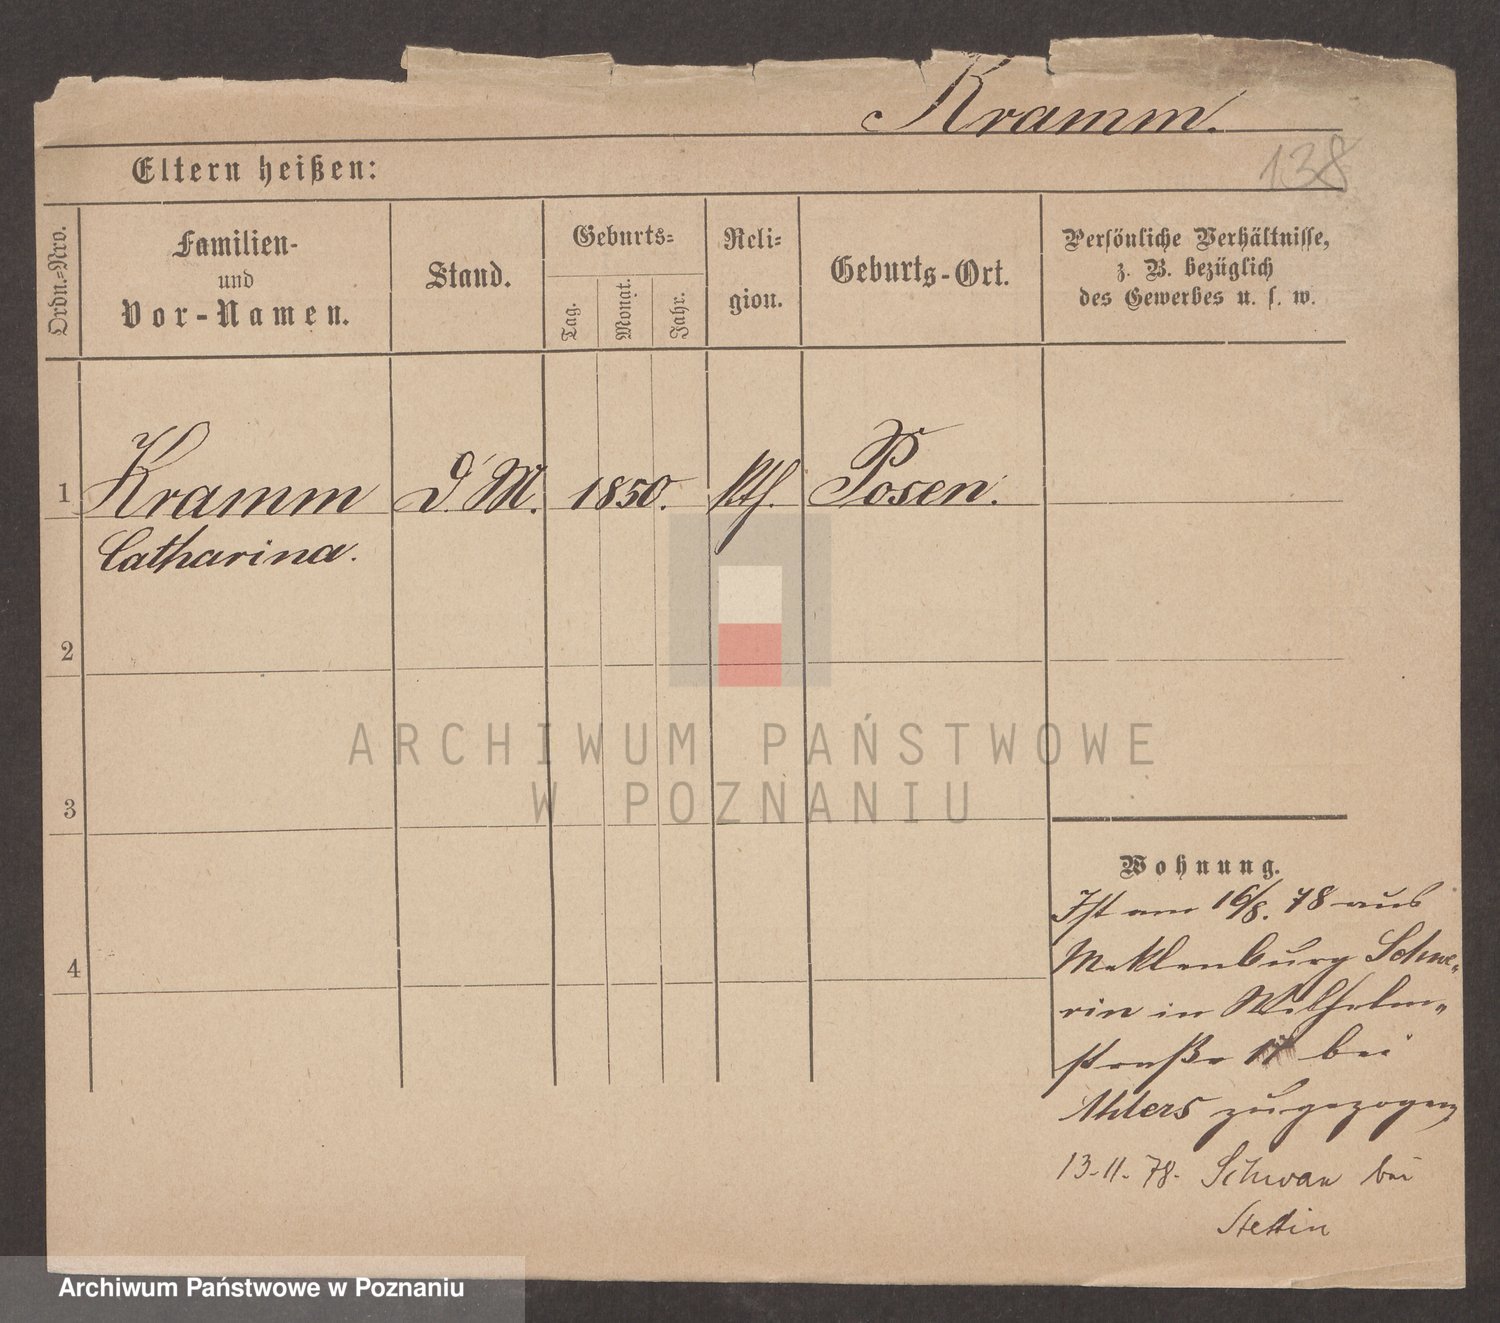 Kramm.
138
Eltern heißen:
Ordn.=Nro.
Familien-
und
Vor-Namen.
Stand.
Geburts=
Tag.
Monat.
Jahr.
Reli=
gion.
Geburts-Ort.
Persönliche Verhältnisse,
z. B. bezüglich
des Gewerbes u. s. w.
1 Kramm D. M. 1850. kth. Posen.
Catharina.
2
3
4
ARCHIWUM PAŃSTWOWE
W POZNANIU
Wohnung.
Ist am 16/8. 78 aus
Meklenburg Schwe„
rin in Wilhelm„
straße 17 bei
Ahlers zugezogen
13-11-78. Schwan bei
Stettin
Archiwum Państwowe w Poznaniu